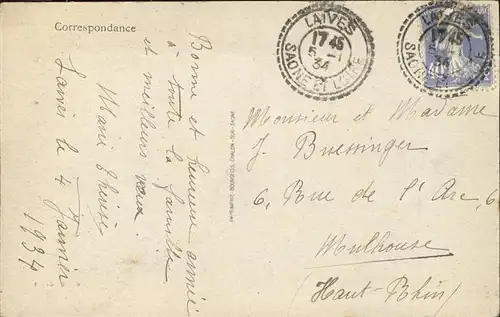 Correspondance
Bonne et heureuse année
à toute la famille
et meilleurs vœux.
Marie Thérèse
Laives le 4 Janvier
1934.
LAIVES
17 45
5 -1
34
SAONE ET LOIRE
LAIVES
17 45
5 -1
34
SAONE ET LOIRE
Monsieur et Madame
J. Buessinger
6, Rue de l'Arc, 6
Mulhouse
(Haut-Rhin)